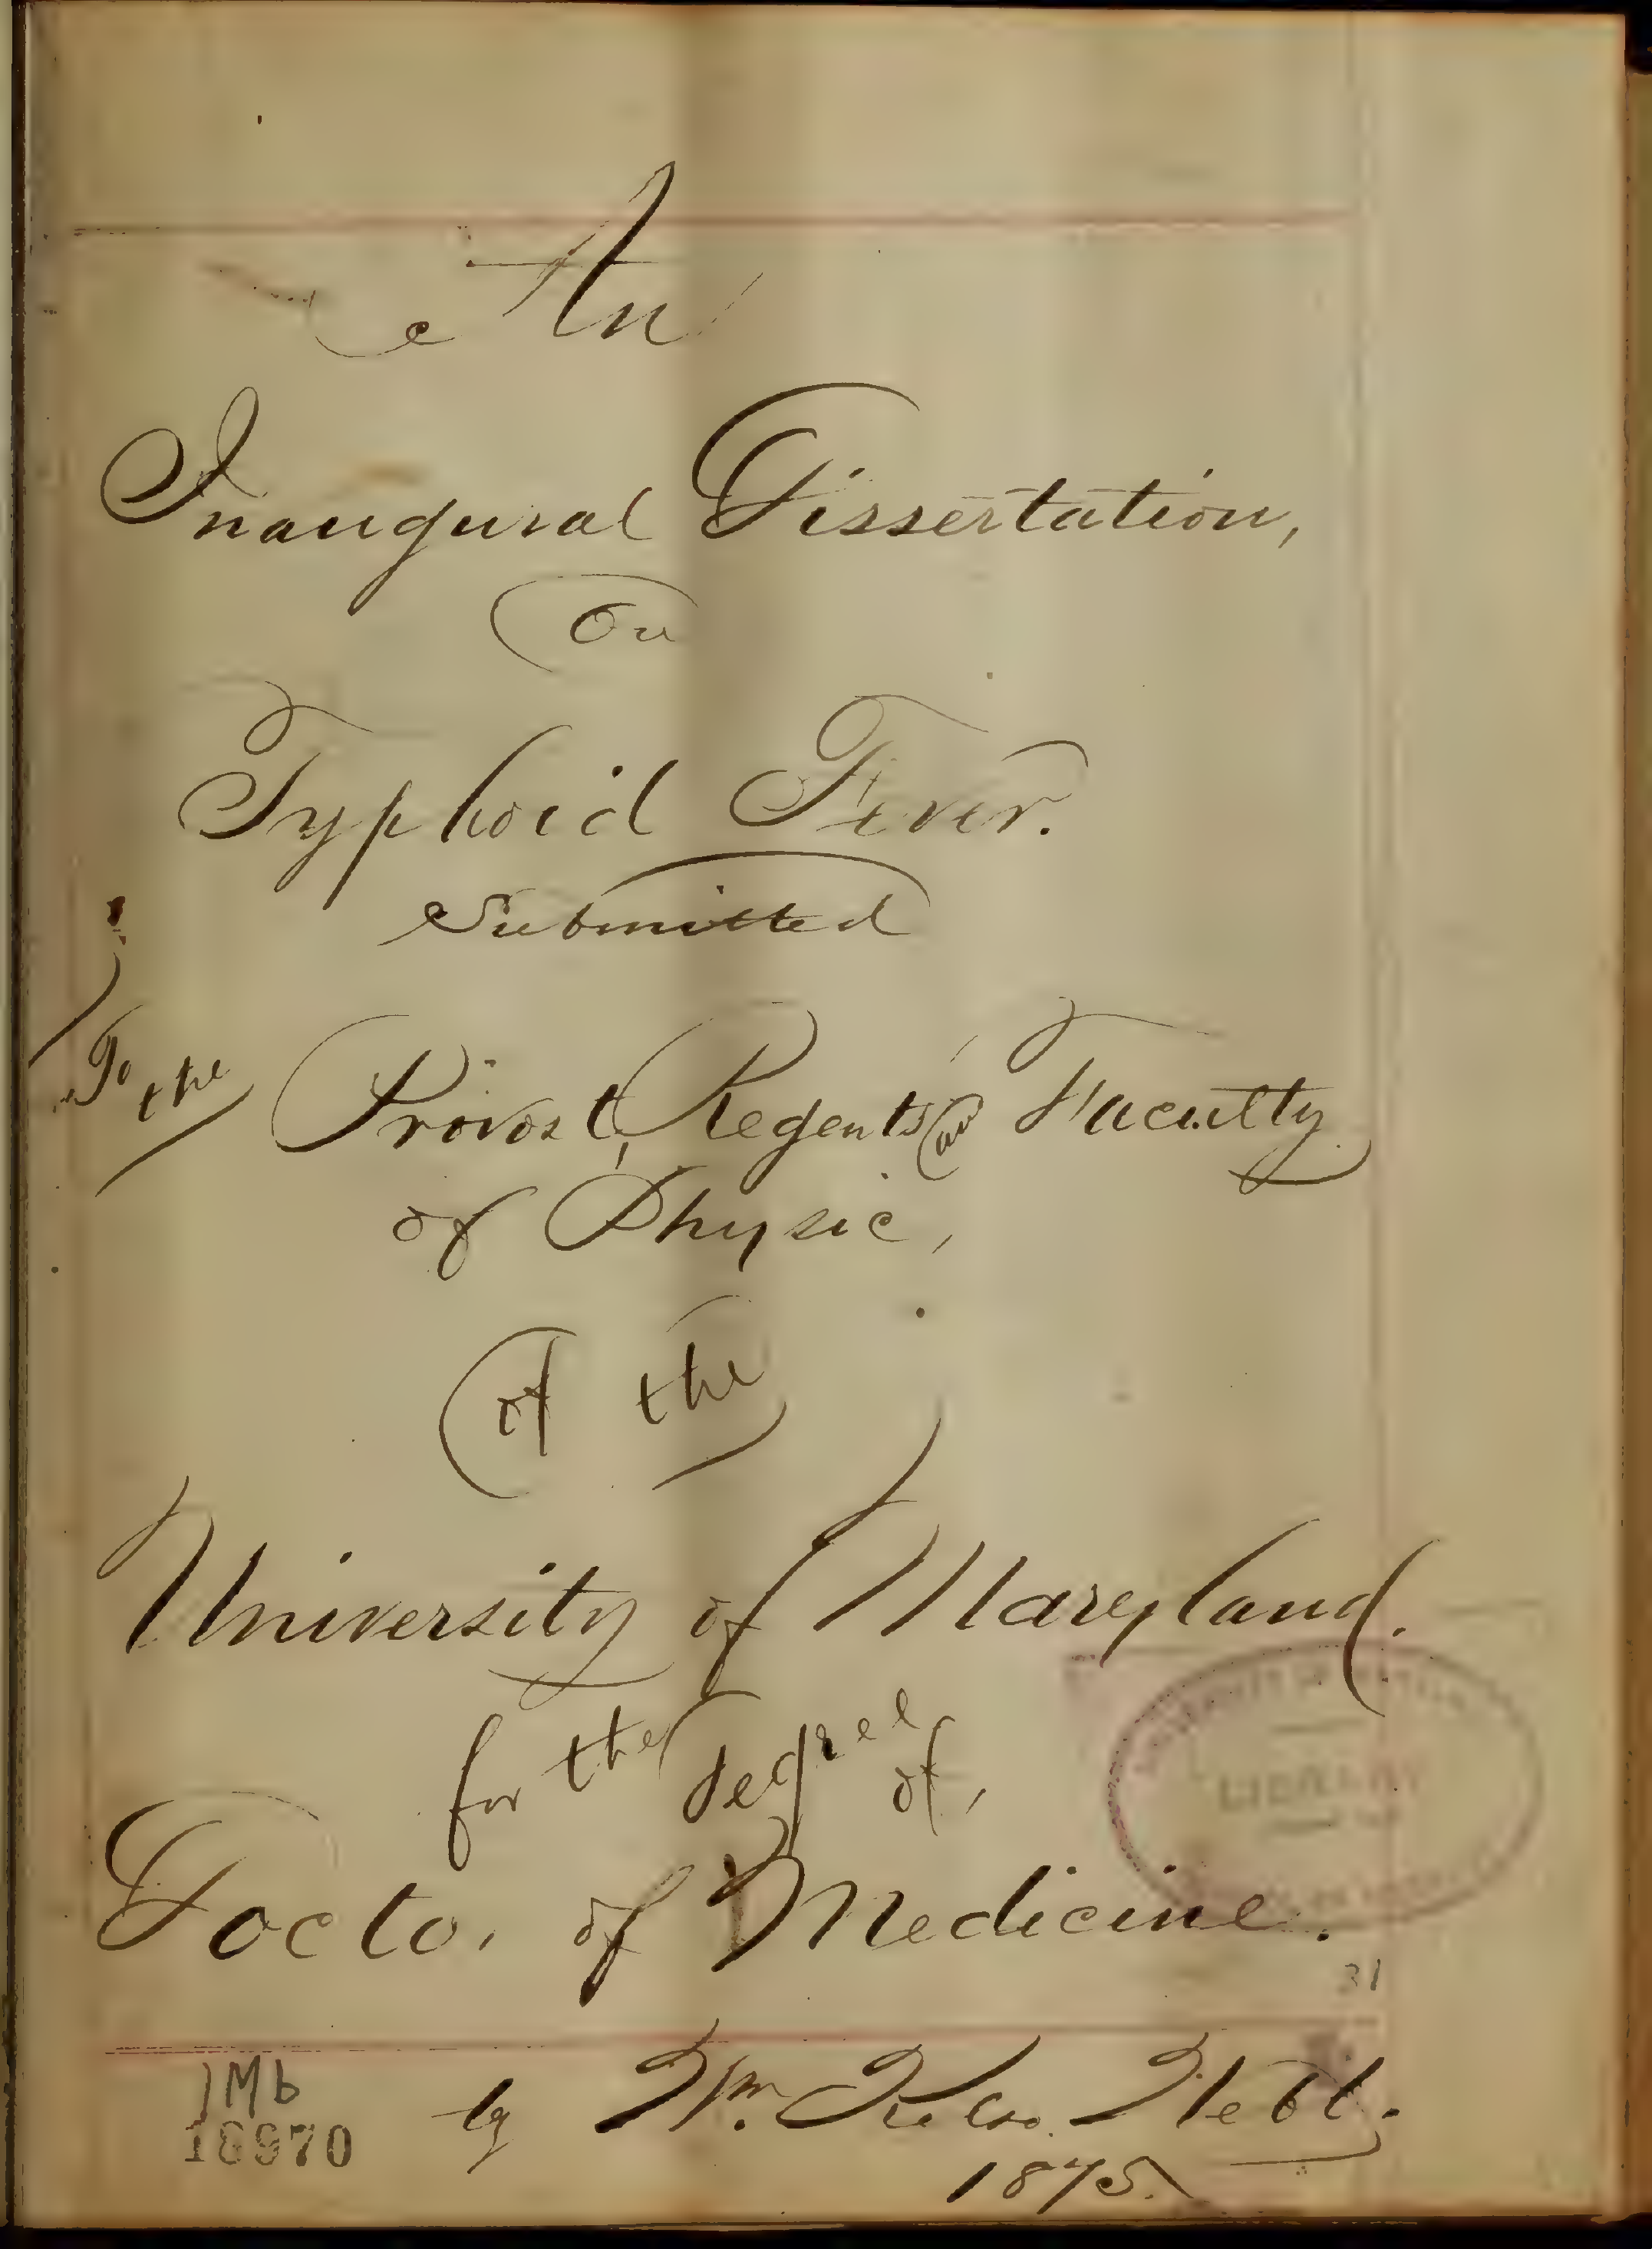 An
Inaugural Dissertation,
On
Typhoid Fever.
Submitted
To the Provost, Regents and Faculty
of Physic,
of the
University of Maryland.
for the degree of,
Doctor of Medicine.
31
by Wm. Kelso
1875.
LIBRARY
1Mb
18970